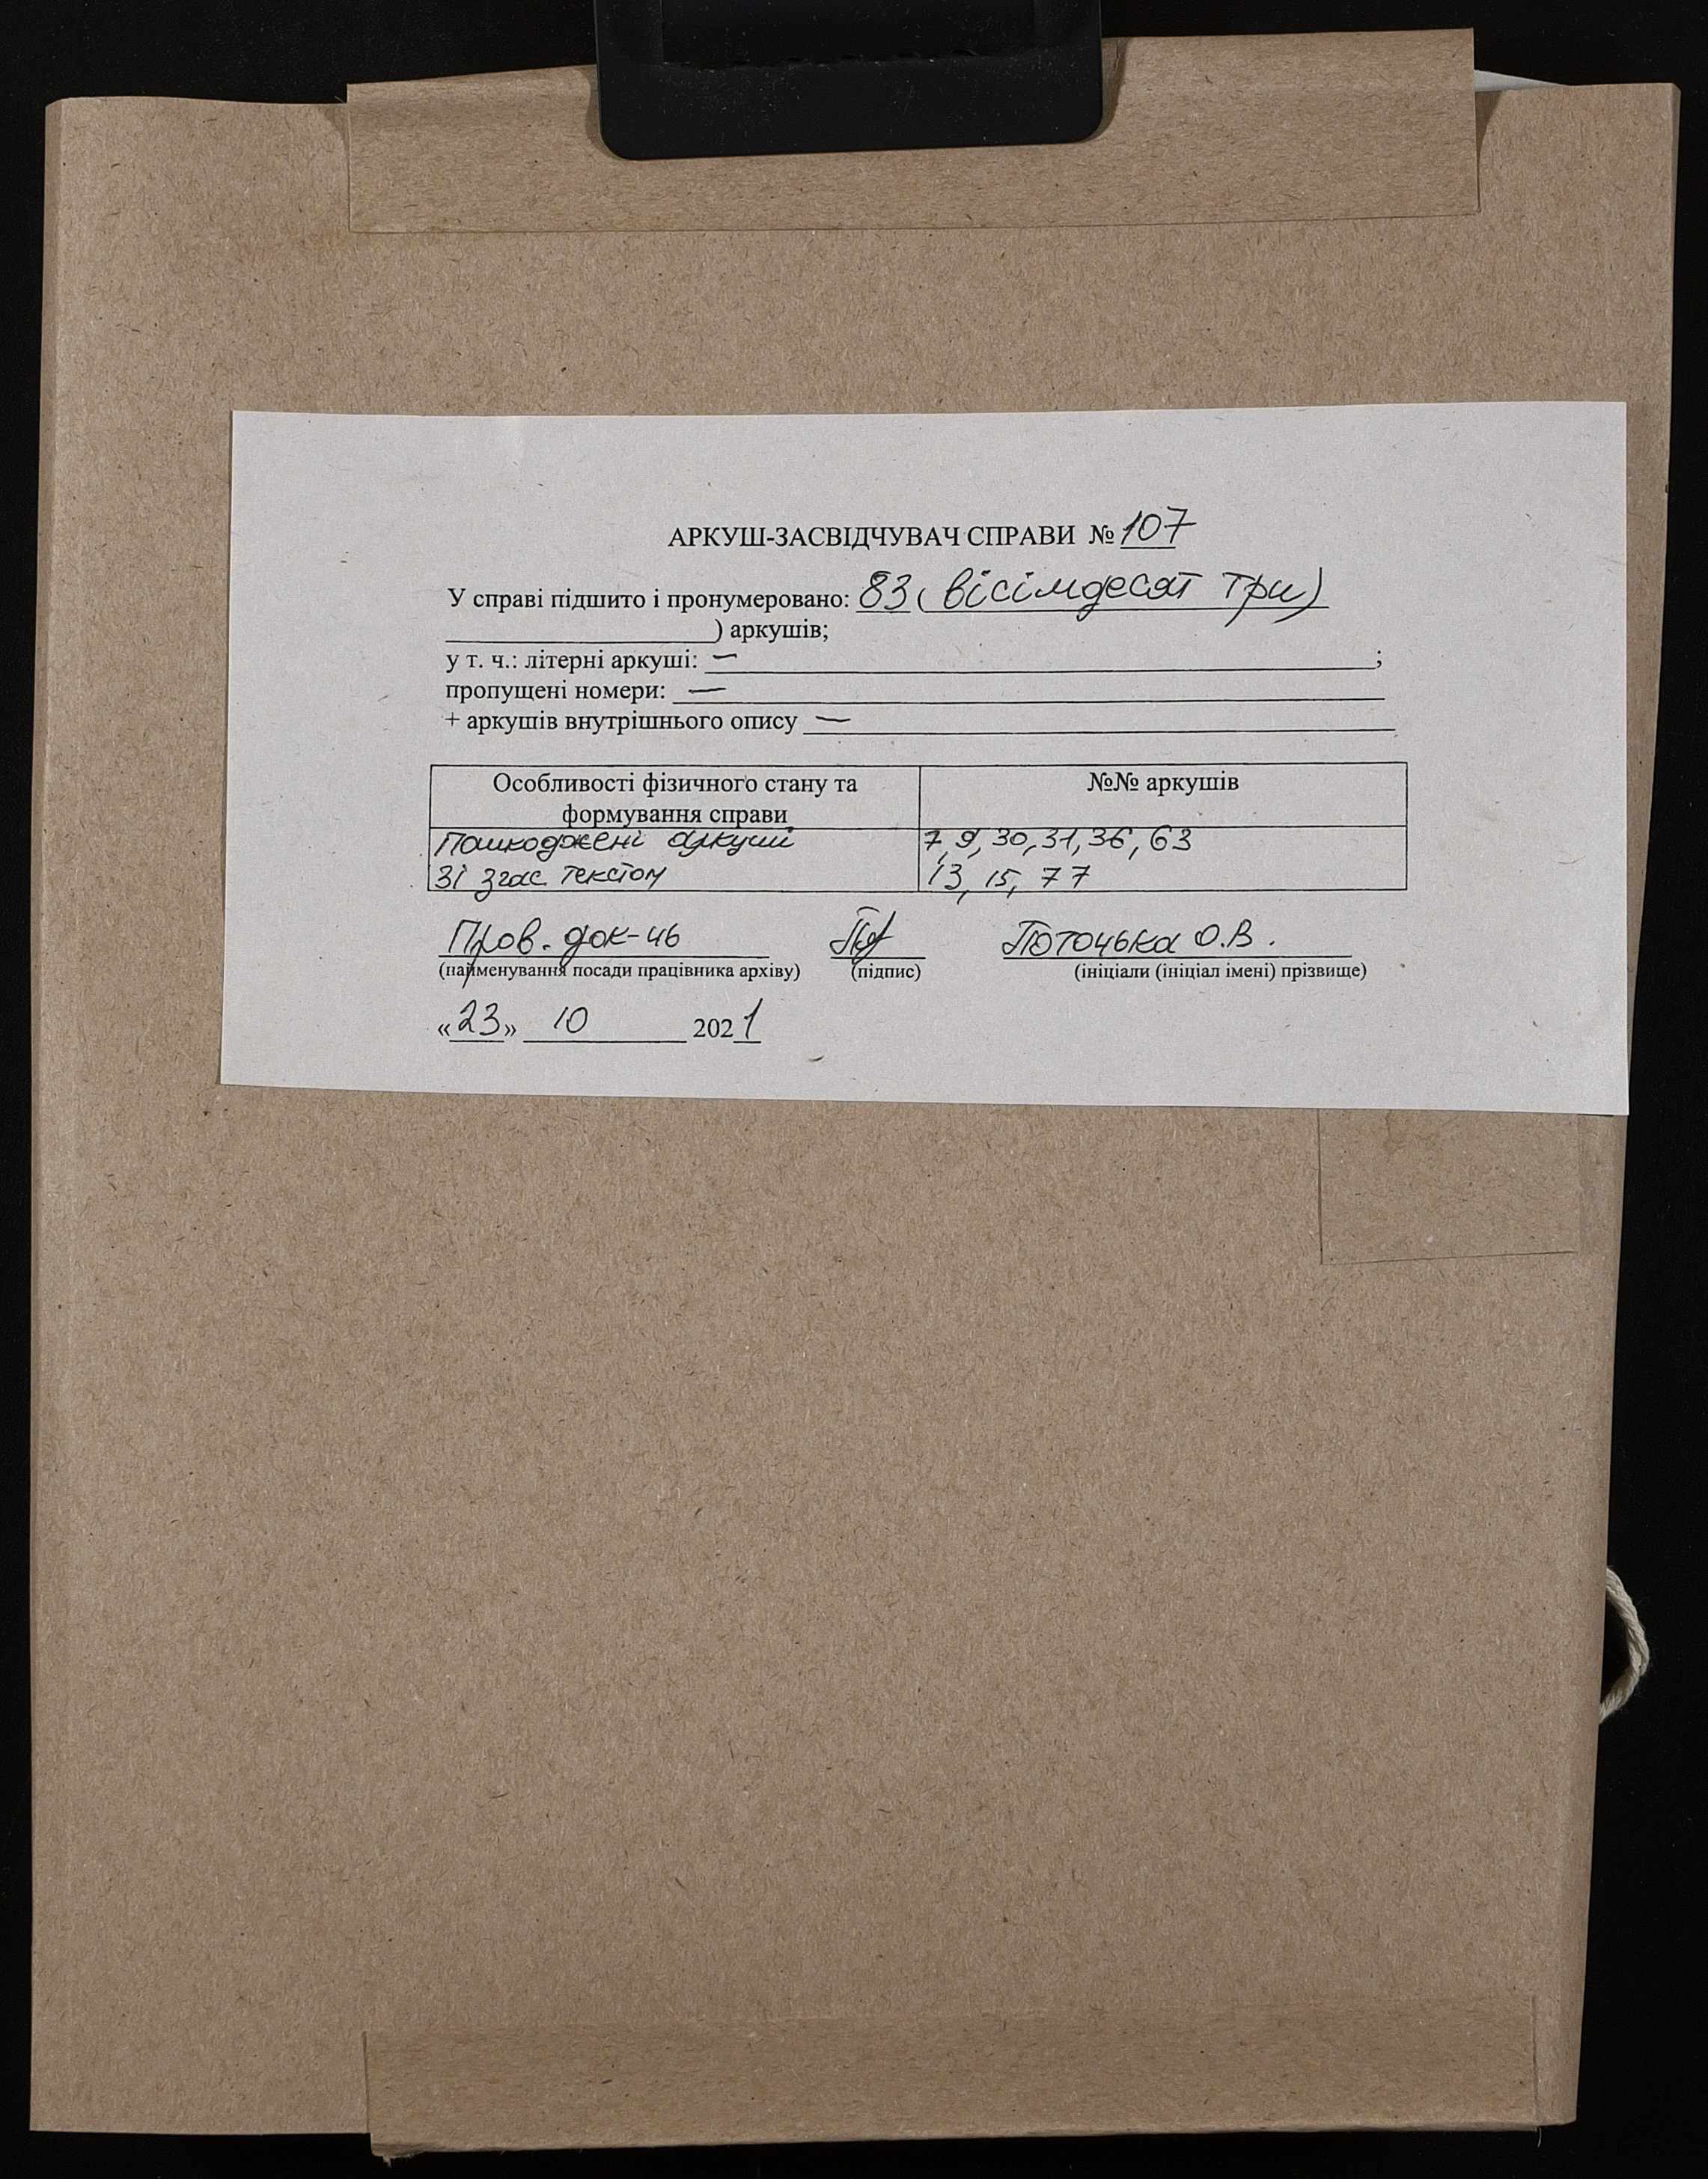 АРКУШ-ЗАСВІДЧУВАЧ СПРАВИ № 107
У справі підшито і пронумеровано: 83 ( вісімдесят три)
) аркушів;
у т. ч.: літерні аркуші: — ;
пропущені номери: —
+ аркушів внутрішнього опису —
Особливості фізичного стану та формування справи №№ аркушів
Пошкоджені аркуші 7, 9, 30, 31, 36, 63
Зі згас. текстом 13, 15, 77
Пров. док-ч Поточька О.В.
(найменування посади працівника архіву) (підпис) (ініціали (ініціал імені) прізвище)
«23» 10 2021